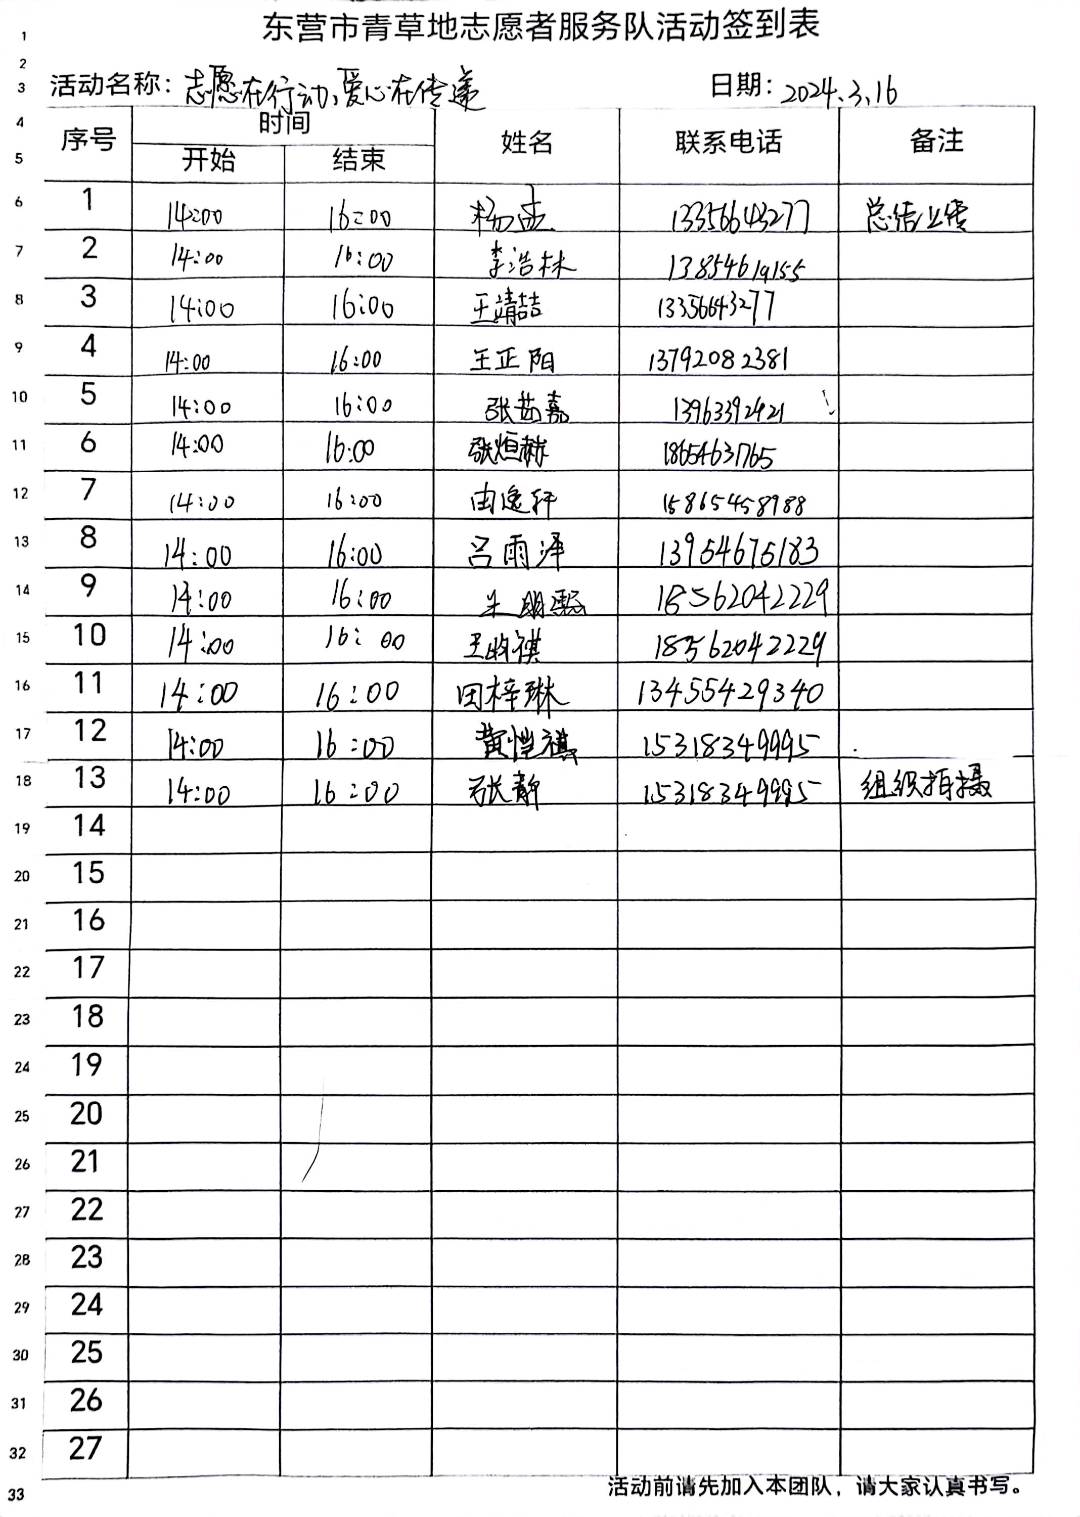 1 东营市青草地志愿者服务队活动签到表
2
3 活动名称：志愿在行动，爱心在传递 日期：2024.3.16
4 序号 时间 姓名 联系电话 备注
5 开始 结束
6 1 14:00 16:00 杨 13356643277 总结上传
7 2 14:00 16:00 李浩林 13854619155
8 3 14:00 16:00 王靖喆 13356643277
9 4 14:00 16:00 王正阳 13792082381
10 5 14:00 16:00 张茹嘉 13963392421
11 6 14:00 16:00 张烜赫 18654631765
12 7 14:00 16:00 由逸轩 15865458988
13 8 14:00 16:00 吕雨泽 13954675183
14 9 14:00 16:00 18562042229
15 10 14:00 16:00 王昀祺 18562042229
16 11 14:00 16:00 田梓琳 13455429340
17 12 14:00 16:00 黄恺祺 15318349995
18 13 14:00 16:00 张静 15318349995 组织拍摄
19 14
20 15
21 16
22 17
23 18
24 19
25 20
26 21
27 22
28 23
29 24
30 25
31 26
32 27
33 活动前请先加入本团队，请大家认真书写。